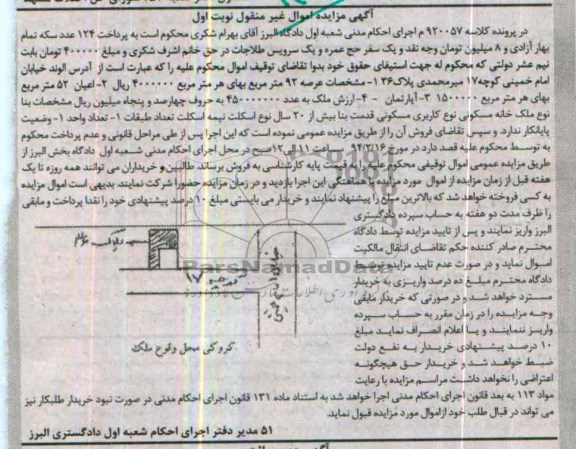 آگهی مزایده اموال غیر منقول نوبت اول
در پرونده کلاسه ۹۲۰۰۵۷ م اجرای احکام مدنی شعبه اول دادگاه البرز آقای بهرام شکری محکوم است به پرداخت ۱۲۴ عدد سکه تمام
بهار آزادی و ۸ میلیون تومان وجه نقد و یک سفر حج عمره و یک سرویس طلاجات در حق خانم اشرف شکری و مبلغ ۴۰۰۰۰۰ تومان بابت
نیم عشر دولتی که محکوم له جهت استیفای حقوق خود بدوا تقاضای توقیف اموال محکوم علیه را که عبارت است از آدرس الوند خیابان
امام خمینی کوچه ۱۷ میرمحمدی پلاک ۳۶ ۱- مشخصات عرصه ۹۲ متر مربع بهای هر متر مربع ۴۰۰۰۰۰۰ ریال ۲- اعیان ۵۲ متر مربع
بهای هر متر مربع ۱۵۰۰۰۰۰ ۳- آپارتمان - ۴- ارزش ملک به عدد ۴۵۰۰۰۰۰۰۰ به حروف چهارصد و پنجاه میلیون ریال مشخصات بنا
نوع ملک خانه مسکونی نوع کاربری مسکونی قدمت بنا بیش از ۲۰ سال نوع اسکلت نیمه اسکلت تعداد طبقات ۱- تعداد واحد ۱- وضعیت
پایانکار ندارد. و سپس تقاضای فروش آن را از طریق مزایده عمومی نموده است که این اجرا پس از طی مراحل قانونی و عدم پرداخت محکوم
به توسط محکوم علیه قصد دارد در مورخ ۹۴/۲/۱۶ ساعت ۱۱ الی ۱۲ صبح در محل اجرای احکام مدنی شعبه اول دادگاه بخش البرز از
طریق مزایده عمومی اموال توقیفی محکوم علیه را به قیمت پایه کارشناسی به فروش برساند. طالبین و خریداران می توانند همه روزه تا یک
هفته قبل از زمان مزایده از اموال مورد مزایده با هماهنگی این اجرا بازدید و در زمان مزایده حضورا شرکت نمایند. بدیهی است اموال مزایده
به کسی فروخته خواهد شد که بالاترین مبلغ را پیشنهاد نمایند و خریدار می بایستی مبلغ ۱۰ درصد پیشنهادی خود را نقدا پرداخت و مابقی
را ظرف مدت دو هفته به حساب سپرده دادگستری
البرز واریز نمایند و پس از تایید مزایده توسط دادگاه
محترم صادر کننده حکم تقاضای انتقال مالکیت
اموال نماید و در صورت عدم تایید مزایده توسط
دادگاه محترم مبلغ ده درصد واریزی به خریدار
مسترد خواهد شد و در صورتی که خریدار مابقی
وجه مزایده را در زمان مقرر به حساب سپرده
واریز ننمایند و یا اعلام انصراف نماید مبلغ
۱۰ درصد پیشنهادی خریدار به نفع دولت
ضبط خواهد شد و خریدار حق هیچگونه
اعتراضی را نخواهد داشت مراسم مزایده با رعایت
مواد ۱۱۳ به بعد قانون اجرای احکام مدنی اجرا خواهد شد به استناد ماده ۱۳۱ قانون اجرای احکام مدنی در صورت نبود خریدار طلبکار نیز
می تواند در قبال طلب خود از اموال مورد مزایده قبول نماید.
۵۱ مدیر دفتر اجرای احکام شعبه اول دادگستری البرز
کروکی محل وقوع ملک
ParsNamadData